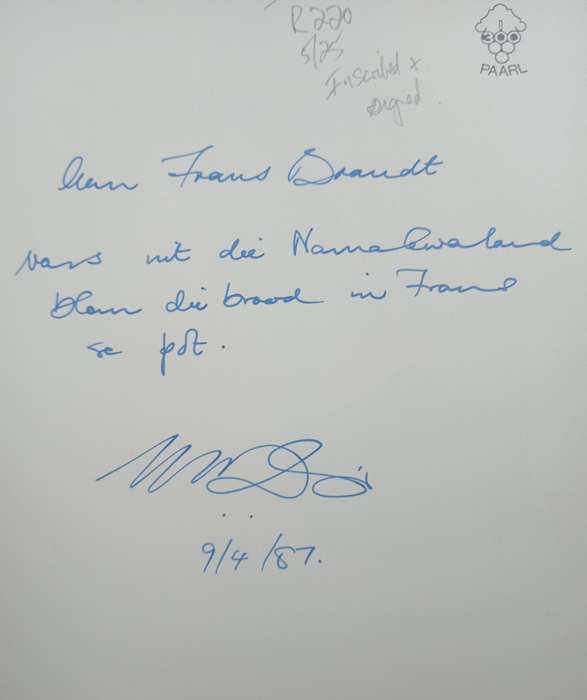 R220
5/25
Inscribed +
signed.
300
PAARL
Aan Frans Brandt
Vars uit die Namakwaland
blom die brood in Frans
se pot.
9/4/87.